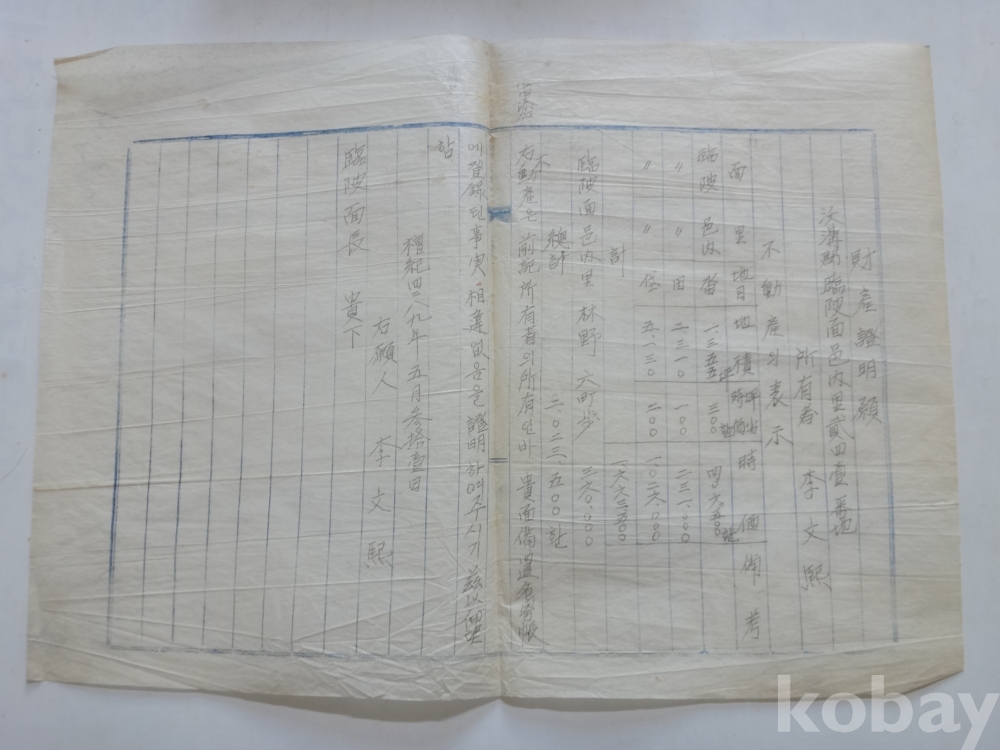 財産證明願
沃溝郡臨陂面邑內里貳四壹番地
所有者 李文熙
不動産의表示
面 里 地目 地積 坪當時價 時價 備考
臨陂 邑內 畓 一.三五五坪 三〇〇 四〇六五〇〇
〃 〃 田 二.三一〇 一〇〇 二三一.〇〇〇
〃 〃 垈 五.一三〇 二〇〇 一.〇二六.〇〇〇
計 一六六三五〇〇
臨陂面邑內里 林野 六町步 三六〇.〇〇〇
總計 二.〇二三.五〇〇환
右不動産은 前記所有者의所有인바 貴面備置名寄帳
에登錄된事実 相違없음을證明하여주시기 玆以仰望
함
檀紀四二八九年 五月參拾壹日
右願人 李文熙
臨陂面長 貴下
kobay